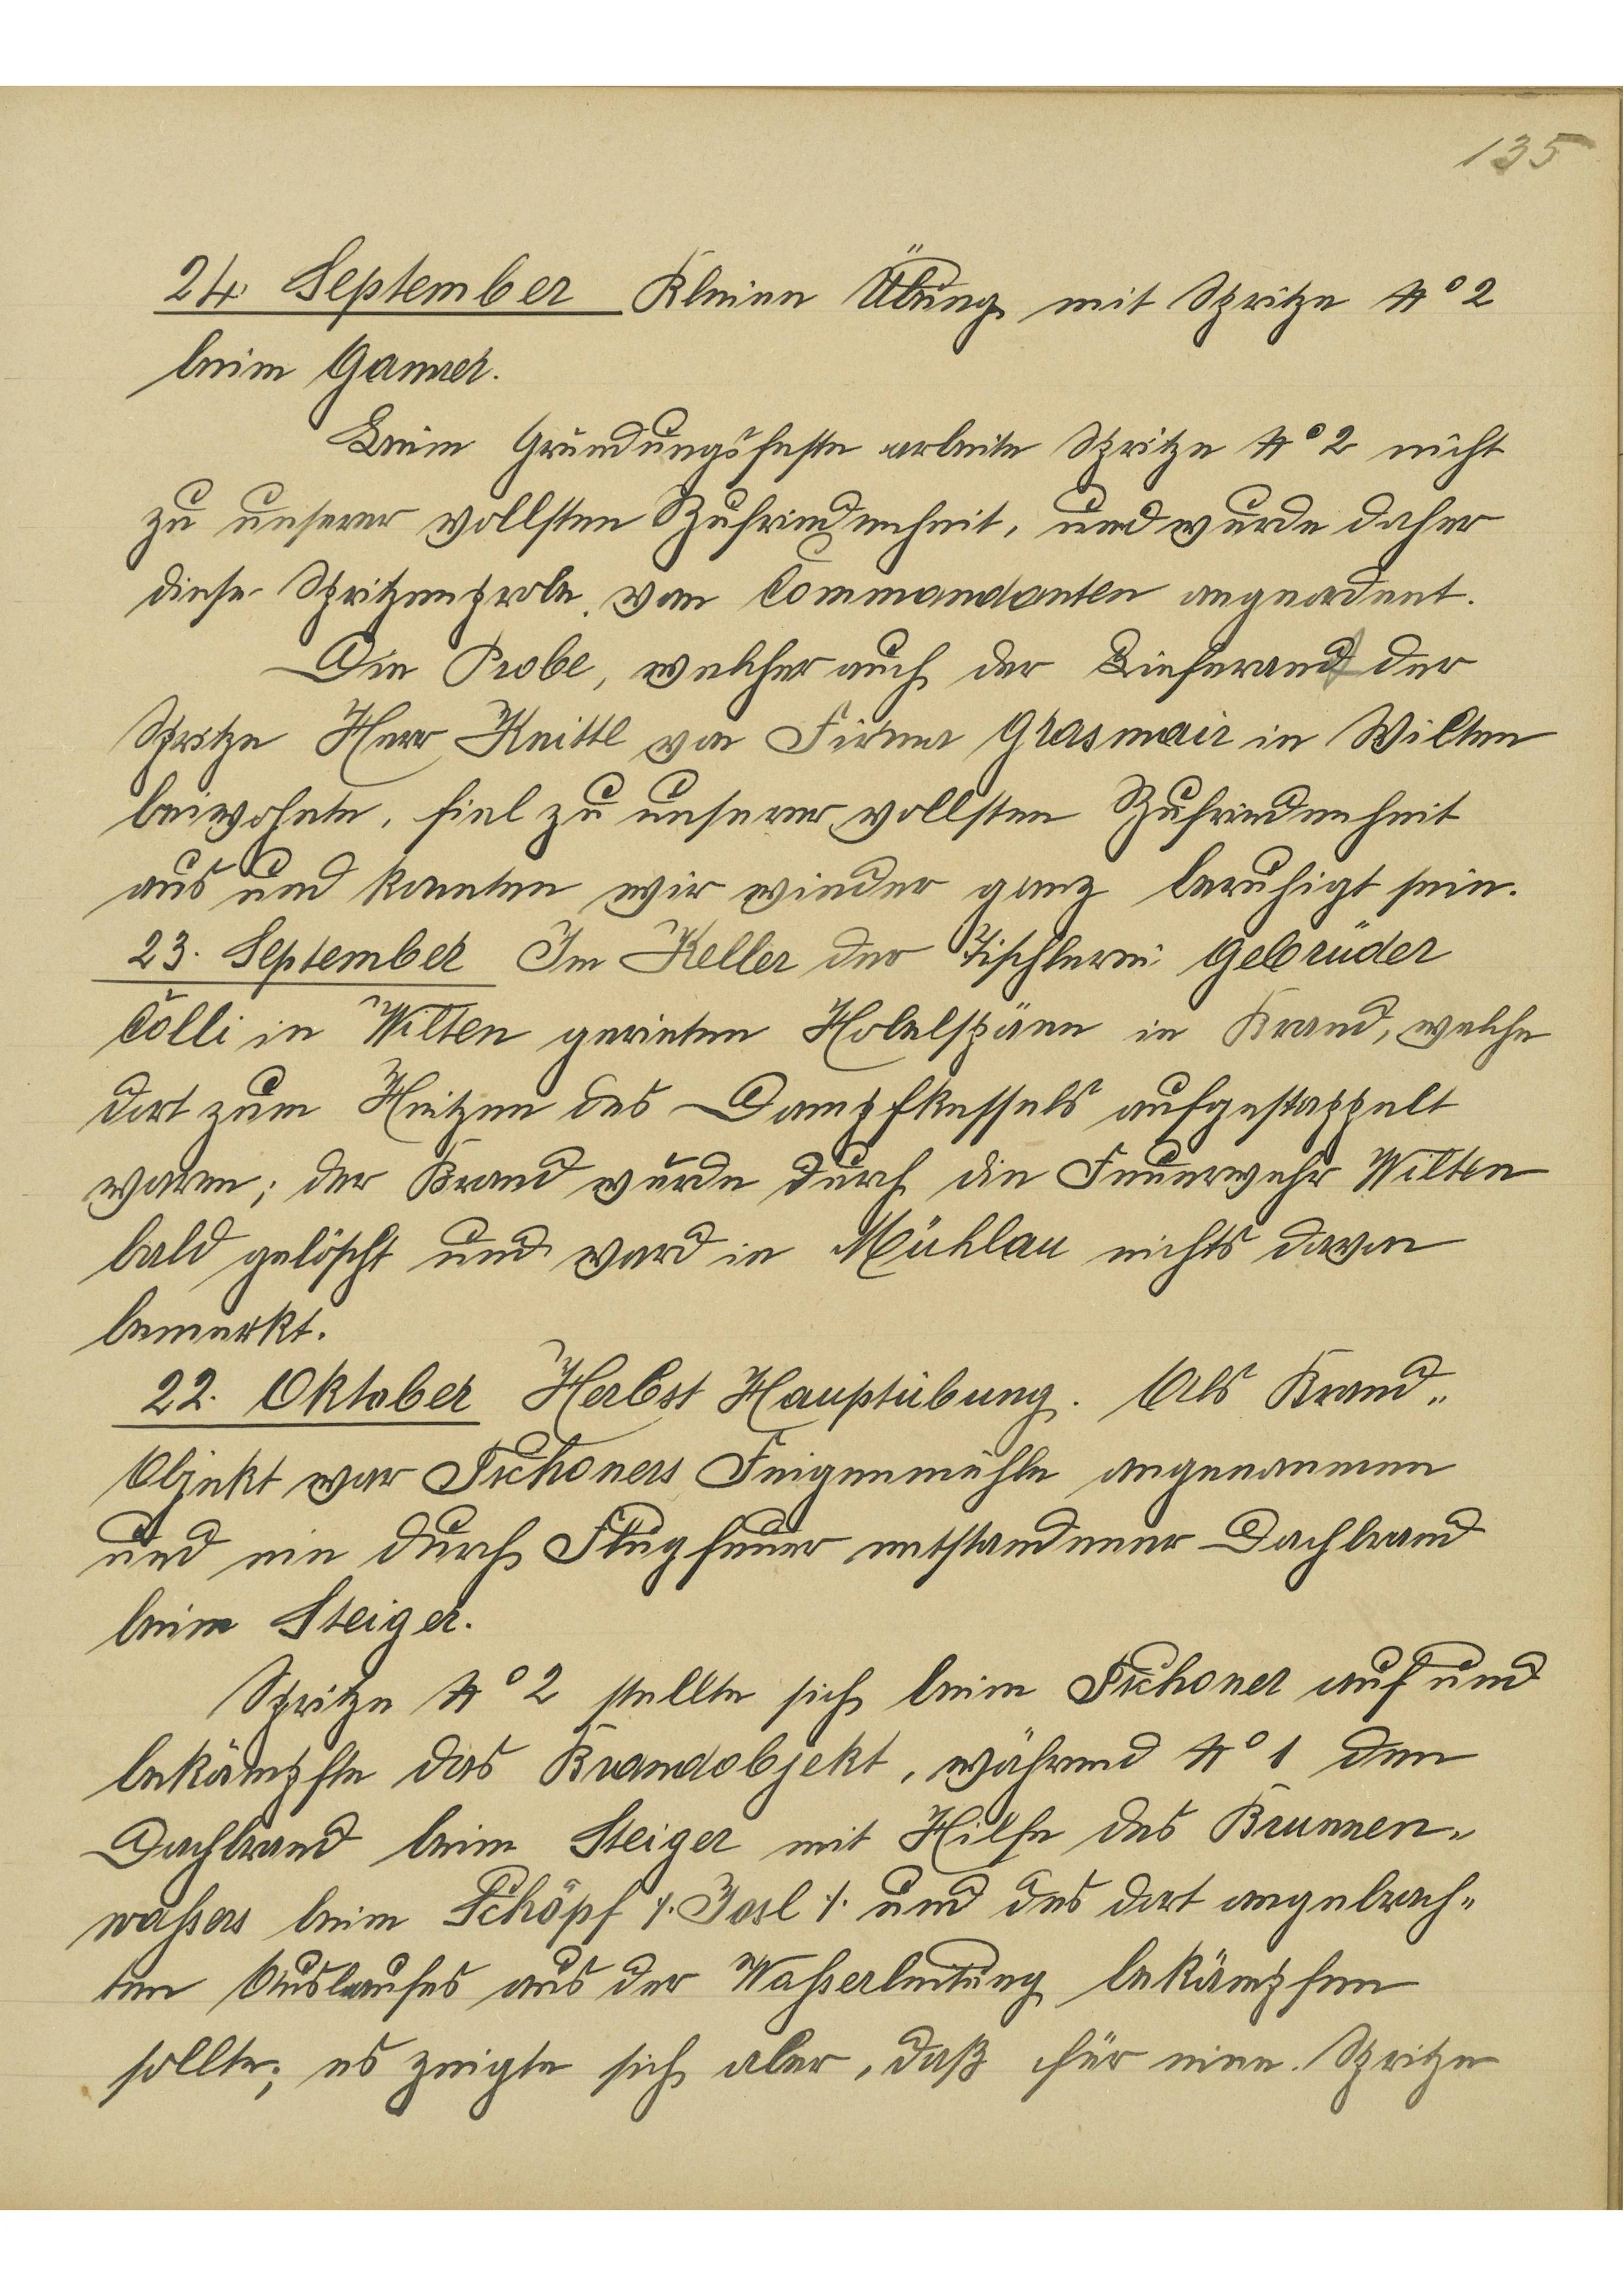 135
24. September Kleine Übung mit Spritze No 2
beim Ganner.
Beim Gründungsfeste arbeite Spritze No 2 nicht
zu unserer vollsten Zufriedenheit, und wurde daher
diese Spritzenprobe vom Commandanten angeordent.
Die Probe, welcher auch der Lieferant der
Spritze Herr Knittl von Firma Grasmair in Wilten
beiwohnte, fiel zu unserer vollsten Zufriedenheit
aus und konnten wir wieder ganz beruhigt sein.
23. September Im Keller der Tischlerei Gebrüder
Colli in Wilten gerieten Hobelspäne in Brand, welche
dort zum Heitzen des Dampfkessels aufgestappelt
waren; der Brand wurde durch die Feuerwehr Wilten
bald gelöscht und ward in Mühlau nichts davon
bemerkt.
22. Oktober Herbst Hauptübung. Als Brand„
Objekt war Tschoners Feigenmühle angenommen
und ein durch Flugfeuer entstandener Dachbrand
beim Steiger.
Spritze No 2 stellte sich beim Tschoner auf und
bekämpfte das Brandobjekt, während No 1 den
Dachbrand beim Steiger mit Hilfe des Brunnen„
waßers beim Schöpf ·/. Josl ·/. und des dort angebrach„
ten Auslaufes aus der Waßerleitung bekämpfen
sollte; es zeigte sich aber, daß für eine Spritze